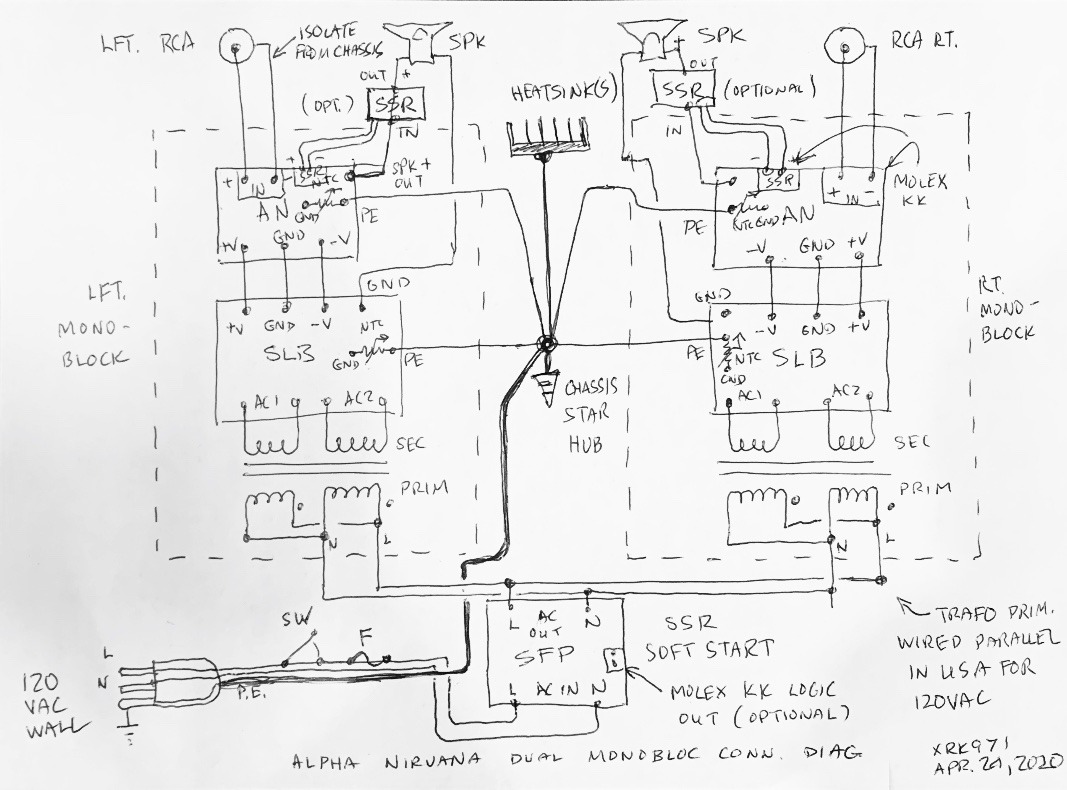 LFT. RCA
ISOLATE
FROM CHASSIS
SPK
OUT +
(OPT.)
SSR
IN
HEATSINK(S)
SPK
+
OUT
SSR
(OPTIONAL)
IN
RCA RT.
+
IN
-
+ -
SSR
NTC
GND
AN
SPK +
OUT
PE
+V
GND
-V
GND
LFT.
MONO-
BLOCK
+V
GND
-V
NTC
SLB
GND
PE
AC1
AC2
SEC
PRIM
N
L
CHASSIS
STAR
HUB
+ -
SSR
+
IN
-
MOLEX
KK
PE
NTC
GND
AN
-V
GND
+V
GND
-V
GND
+V
RT.
MONO-
BLOCK
PE
NTC
GND
SLB
AC1
AC2
SEC
PRIM
N
L
SW
F
L
N
120
VAC
WALL
P.E.
L
AC
OUT
N
SFP
L
AC IN
N
SSR
SOFT START
MOLEX KK LOGIC
OUT (OPTIONAL)
TRAFO PRIM.
WIRED PARALLEL
IN USA FOR
120VAC
ALPHA NIRVANA DUAL MONOBLOC CONN. DIAG
XRK971